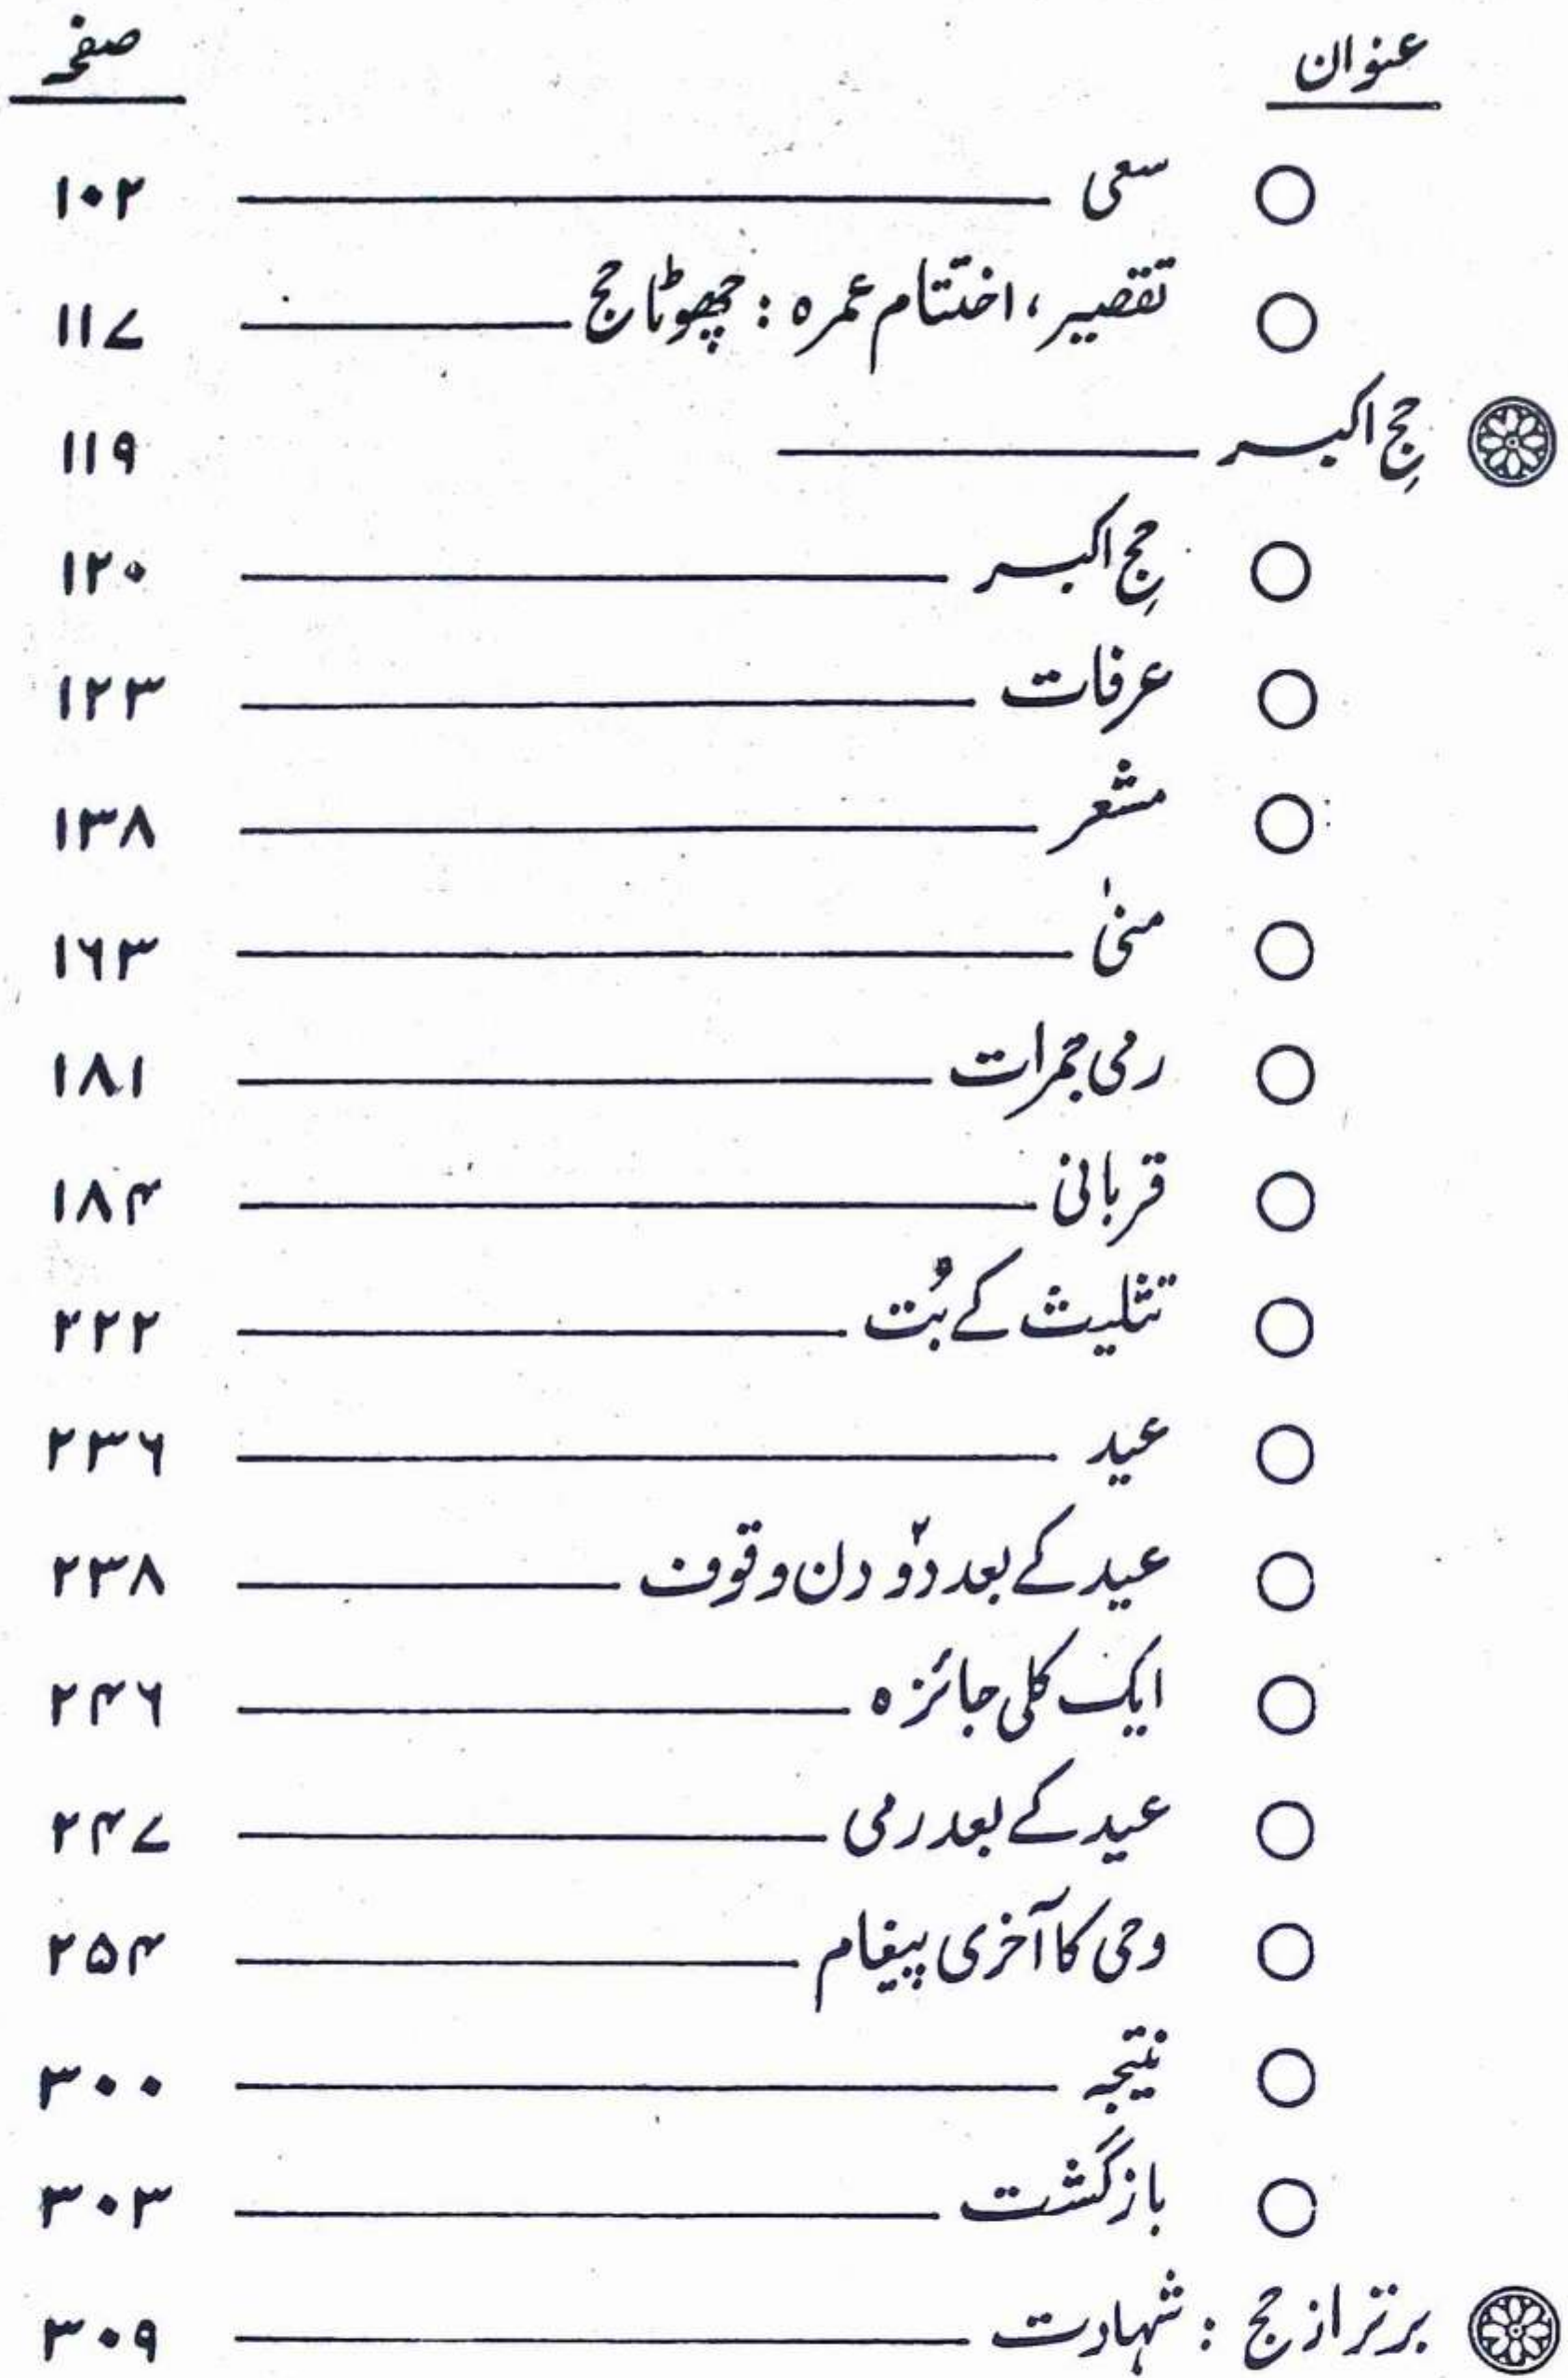 عنوان صفحہ
سعی ۱۰۲
تقصیر، اختتام عمرہ : چھوٹا حج ۱۱۷
حجِ اکبر ۱۱۹
حجِ اکبر ۱۲۰
عرفات ۱۲۳
مشعر ۱۳۸
منیٰ ۱۶۳
رمی جمرات ۱۸۱
قربانی ۱۸۴
تثلیث کے بُت ۲۲۲
عید ۲۳۶
عید کے بعد دو۲ دن وقوف ۲۳۸
ایک کلی جائزہ ۲۴۶
عید کے بعد رمی ۲۴۷
وحی کا آخری پیغام ۲۵۴
نتیجہ ۳۰۰
بازگشت ۳۰۳
برتر از حج : شہادت ۳۰۹